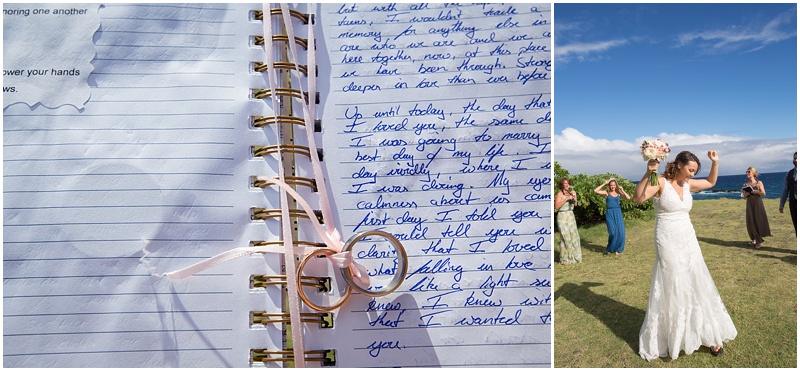 noring one another
ower your hands
ws.
but with all the
turns, I wouldn't trade a
memory for anything else in
are who we are and we a
here together, now, at this place
we have been through. Strong
deeper in love than ever before
Up until today, the day that
I loved you, the same d
I was going to marry
best day of my life. I
day vividly, where I w
I was driving. My eyes
calmness about us cam
first day I told you
I could tell you w
clarity that I loved
what falling in love
like a light s
knew, I knew wit
that I wanted t
you.